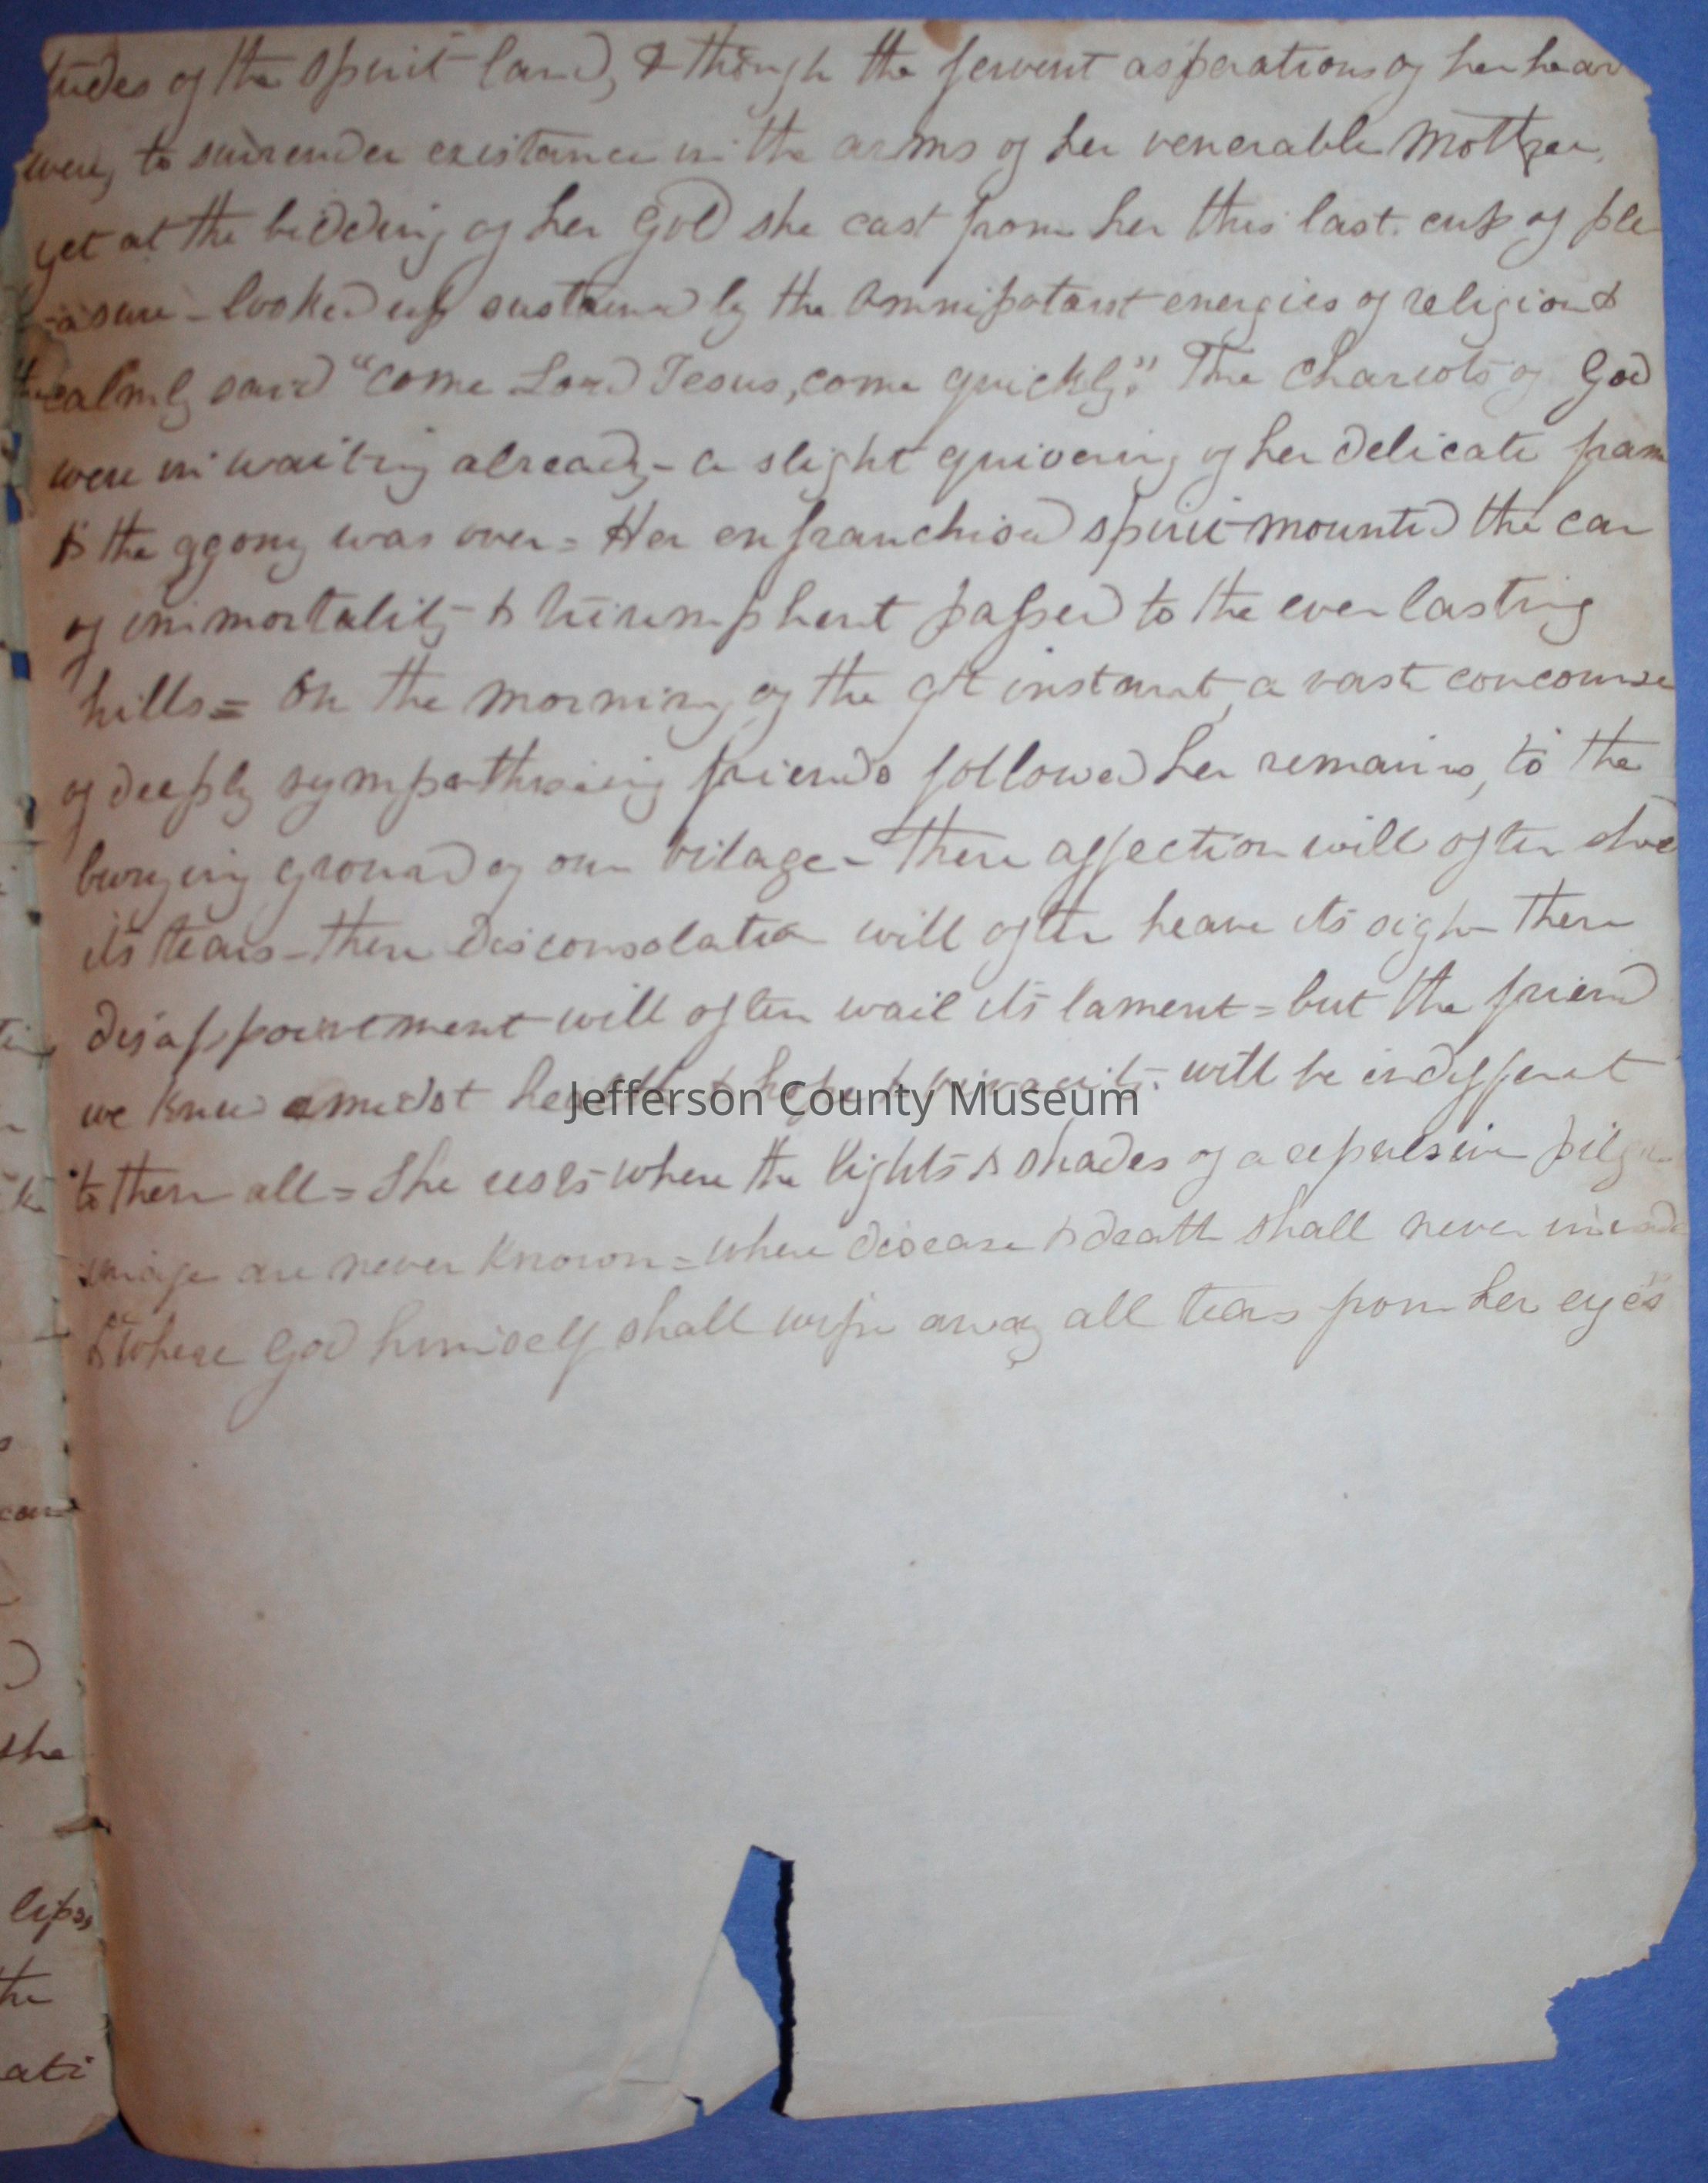 tudes of the spirit land, & though the fervent asperations of her hear
were, to surrender existance in the arms of her venerable Mother,
yet at the bidding of her God she cast from her this last cup of ple
-asure - looked up sustained by the Omnipotant energies of religion &
calmly said "come Lord Jesus, come quickly." The chariots of God
were in waiting already - a slight quivering of her delicate fram
& the agony was over = Her enfranchised spirit mounted the car
of immortality & triumphent passed to the everlasting
hills = On the morning of the instant, a vast concourse
of deeply sympathising friends followed her remains, to the
burying ground of our vilage - There affection will often shed
its tears - there disconsolation will often heave its sigh - there
disappointment will often wail its lament = but the friend
we knew amidst health & hope & will be indifferent
to them all = She rests where the lights & shades of a repulsive pilgr
image are never known = where disease & death shall never invade
& "where God himself shall wipe away all tears from her eyes"
Jefferson County Museum
the
can
she
lips,
the
ati